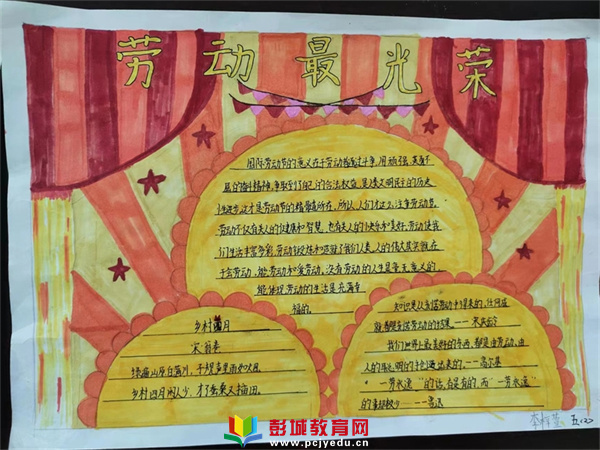 劳动最光荣
国际劳动节的意义在于劳动者通过斗争,用顽强、英勇不
屈的奋斗精神,争取到了自己的合法权益,是人类文明民主的历史
性进步,这才是劳动节的精髓所在。所以,人们才这么注重劳动节。
劳动不仅有关人的健康和智慧,也有关人的快乐和美好,劳动使我
们生活丰富多彩,劳动
我们人类,人的伟大其实就在
于会劳动、能劳动和爱劳动,没有劳动的人生是毫无意义的,
能体现劳动的生活是充满幸
福的。
乡村四月
宋 翁卷
绿遍山原白满川,子规声里雨如烟。
乡村四月闲人少,才了蚕桑又插田。
知识是从劳动中得来的,任何成
就都是劳动的结果。---宋庆龄
我们世界上最美好的东西,都是由劳动、由
人的聪明的手创造出来的。---高尔基
"一劳永逸"的话,有是有的,而"一劳永逸"
的事却极少---鲁迅
五(2)
彭城教育网
www.pcjyedu.cn